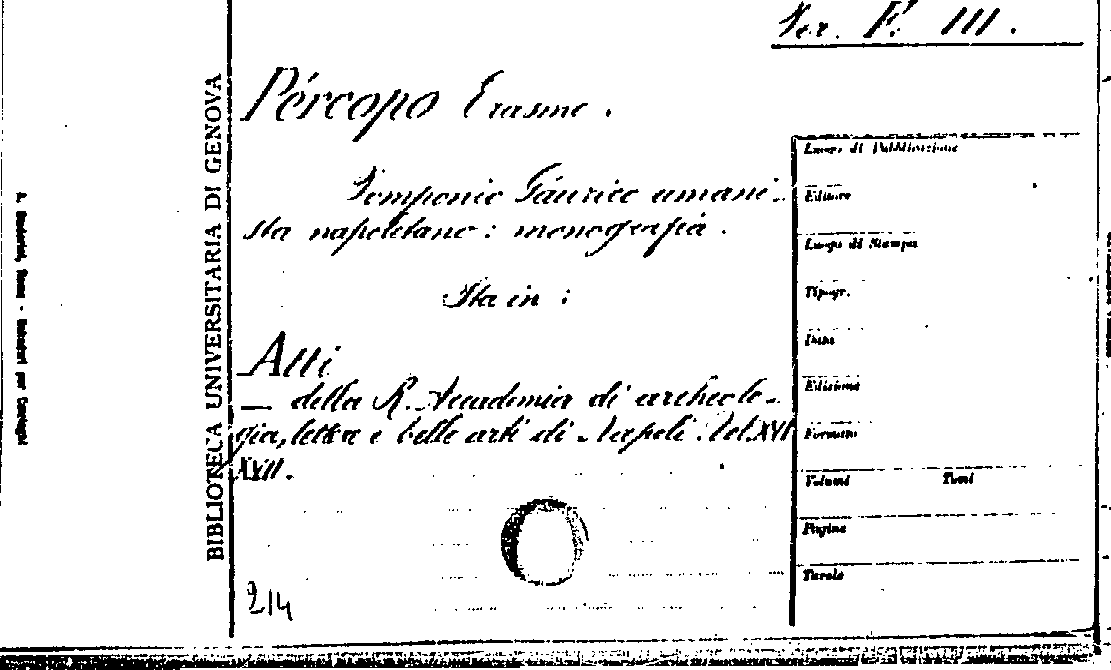 Ser. F. III.
BIBLIOTECA UNIVERSITARIA DI GENOVA
Pércopo Erasmo.
Pomponio Gáurico umani-
sta napoletano: monografia.
Sta in:
Atti
— della R. Accademia di archeolo-
gia, lettere e belle arti di Napoli. Vol. XVI
XVII.
214
Luogo di Pubblicazione
Editore
Luogo di Stampa
Tipogr.
Data
Edizione
Formato
Volumi Tomi
Pagine
Tavole